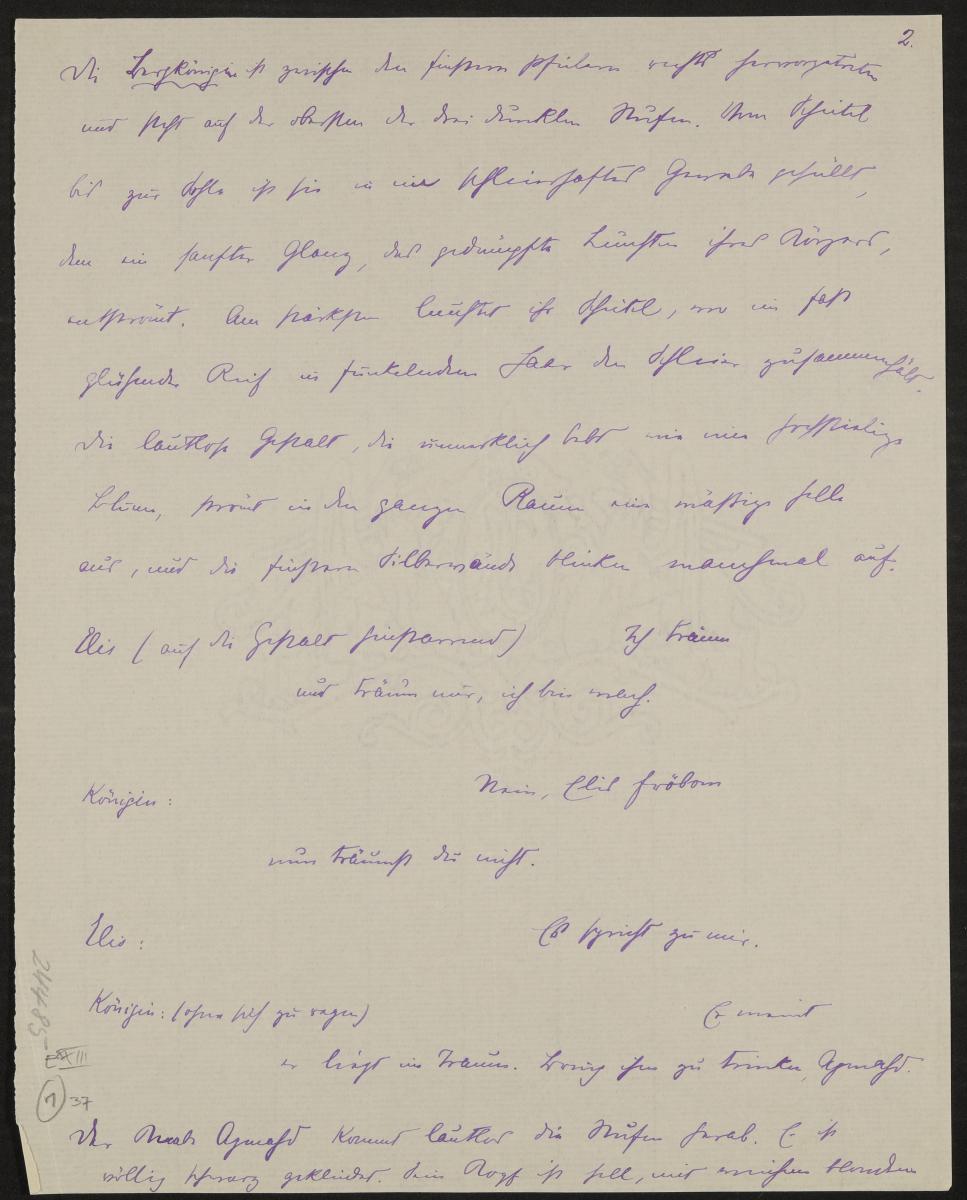 2.
Die Bergkönigin ist zwischen den finstern Pfeilern rechts hervorgetreten
und steht auf der obersten der drei dunklen Stufen. Vom Scheitel
bis zur Sohle ist sie in ein schleierhaftes Gewebe gehüllt,
dem ein sanfter Glanz, das gedämpfte Leuchten ihres Körpers,
entströmt. Am stärksten leuchtet ihr Scheitel, wo ein fast
glühender Reif in funkelndem Haar den Schleier zusammenhält.
Die lautlose Gestalt, die unmerklich bebt wie eine hochstielige
Blume, strömt in den ganzen Raum eine mäßige Helle
aus, und die finstern Silberwände blinken manchmal auf.
Elis (auf die Gestalt hinstarrend) Ich träum
und träum nur, ich bin wach.
Königin: Nein, Elis Fröbom
nun träumst du nicht.
Elis: Es spricht zu mir.
Königin: (ohne sich zu regen) Er meint
er liegt im Traum. Bring ihm zu trinken, Agmahd.
Der Knabe Agmahd kommt lautlos die Stufen herab. Er ist
völlig schwarz gekleidet. Sein Kopf ist hell, mit weichem blonden
24485
E XIII
1 37